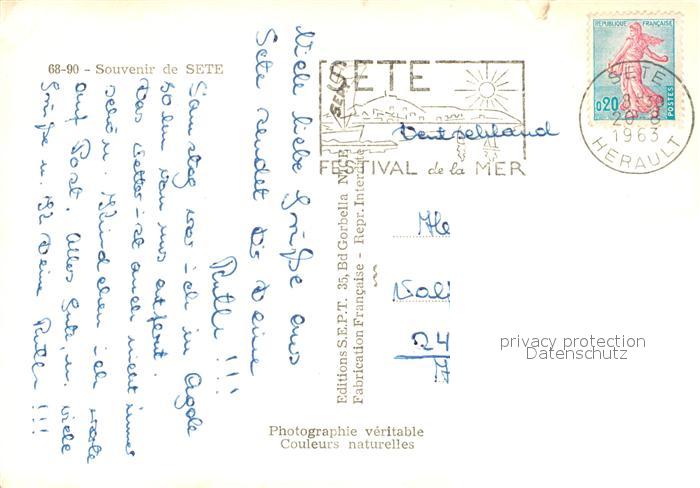 68-90 - Souvenir de SETE
Viele liebe Grüße aus
Sete sendet Dir Deine
Ruth !!!
Samstag war ich in Agde
50 km von uns entfernt.
Das Wetter ist auch nicht immer
schön. Mündchen ich warte
auf Post. Alles Gute, u. viele
Grüße u. Deine Ruth !!!
SETE
FESTIVAL de la MER
REPUBLIQUE FRANÇAISE
0,20
POSTES
SETE
1963
HERAULT
Deutschland
24
Editions S.E.P.T. 35, Bd Gorbella NICE
Fabrication Française - Repr. Interdite
privacy protection
Datenschutz
Photographie véritable
Couleurs naturelles